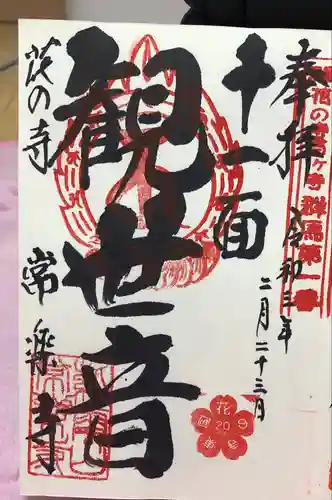 奉拝
令和三年
二月二十三日
花の寺百ヶ寺 群馬第一番
十一面
観世音
茨の寺
常楽寺
花
20